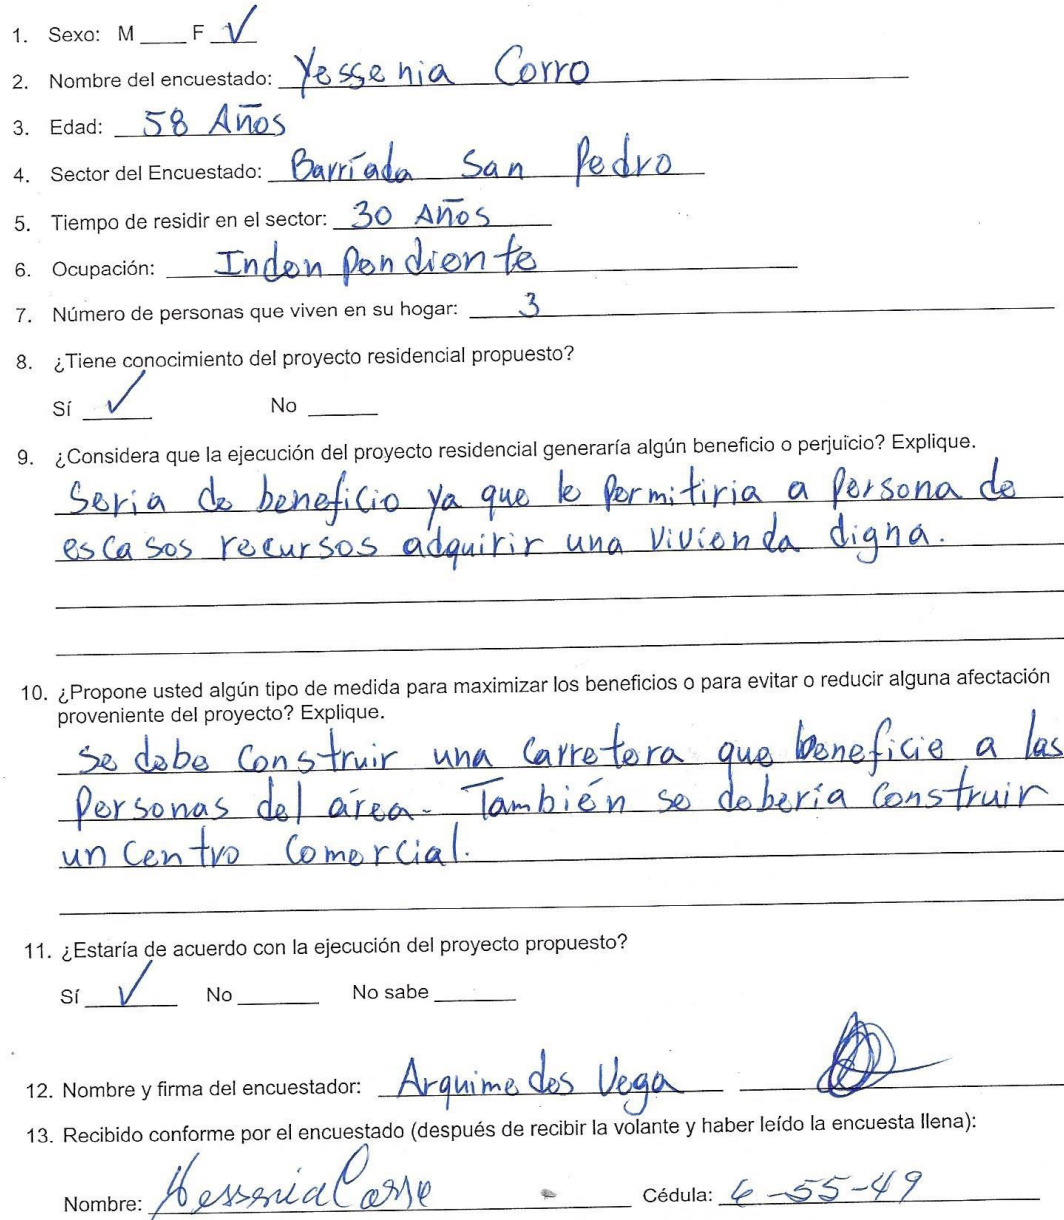 1. Sexo: M ____ F √
2. Nombre del encuestado: Yessenia Corro
3. Edad: 58 Años
4. Sector del Encuestado: Barríada San Pedro
5. Tiempo de residir en el sector: 30 Años
6. Ocupación: Indenpendiente
7. Número de personas que viven en su hogar: 3
8. ¿Tiene conocimiento del proyecto residencial propuesto?
Sí √ No ____
9. ¿Considera que la ejecución del proyecto residencial generaría algún beneficio o perjuicio? Explique.
Seria de beneficio ya que le permitiria a persona de
escasos recursos adquirir una vivienda digna.
10. ¿Propone usted algún tipo de medida para maximizar los beneficios o para evitar o reducir alguna afectación
proveniente del proyecto? Explique.
Se debe construir una carretera que beneficie a las
personas del área. También se debería construir
un centro comercial.
11. ¿Estaría de acuerdo con la ejecución del proyecto propuesto?
Sí √ No ____ No sabe ____
12. Nombre y firma del encuestador: Arquimedes Vega
13. Recibido conforme por el encuestado (después de recibir la volante y haber leído la encuesta llena):
Nombre: Yessenia Corro Cédula: 6-55-49